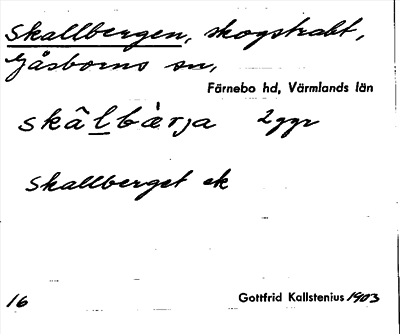 Skallbergen, skogstrakt,
Gåsborns sn,
Färnebo hd, Värmlands län
skâlbàrja 2ggr
Skallberget ek
16 Gottfrid Kallstenius 1903